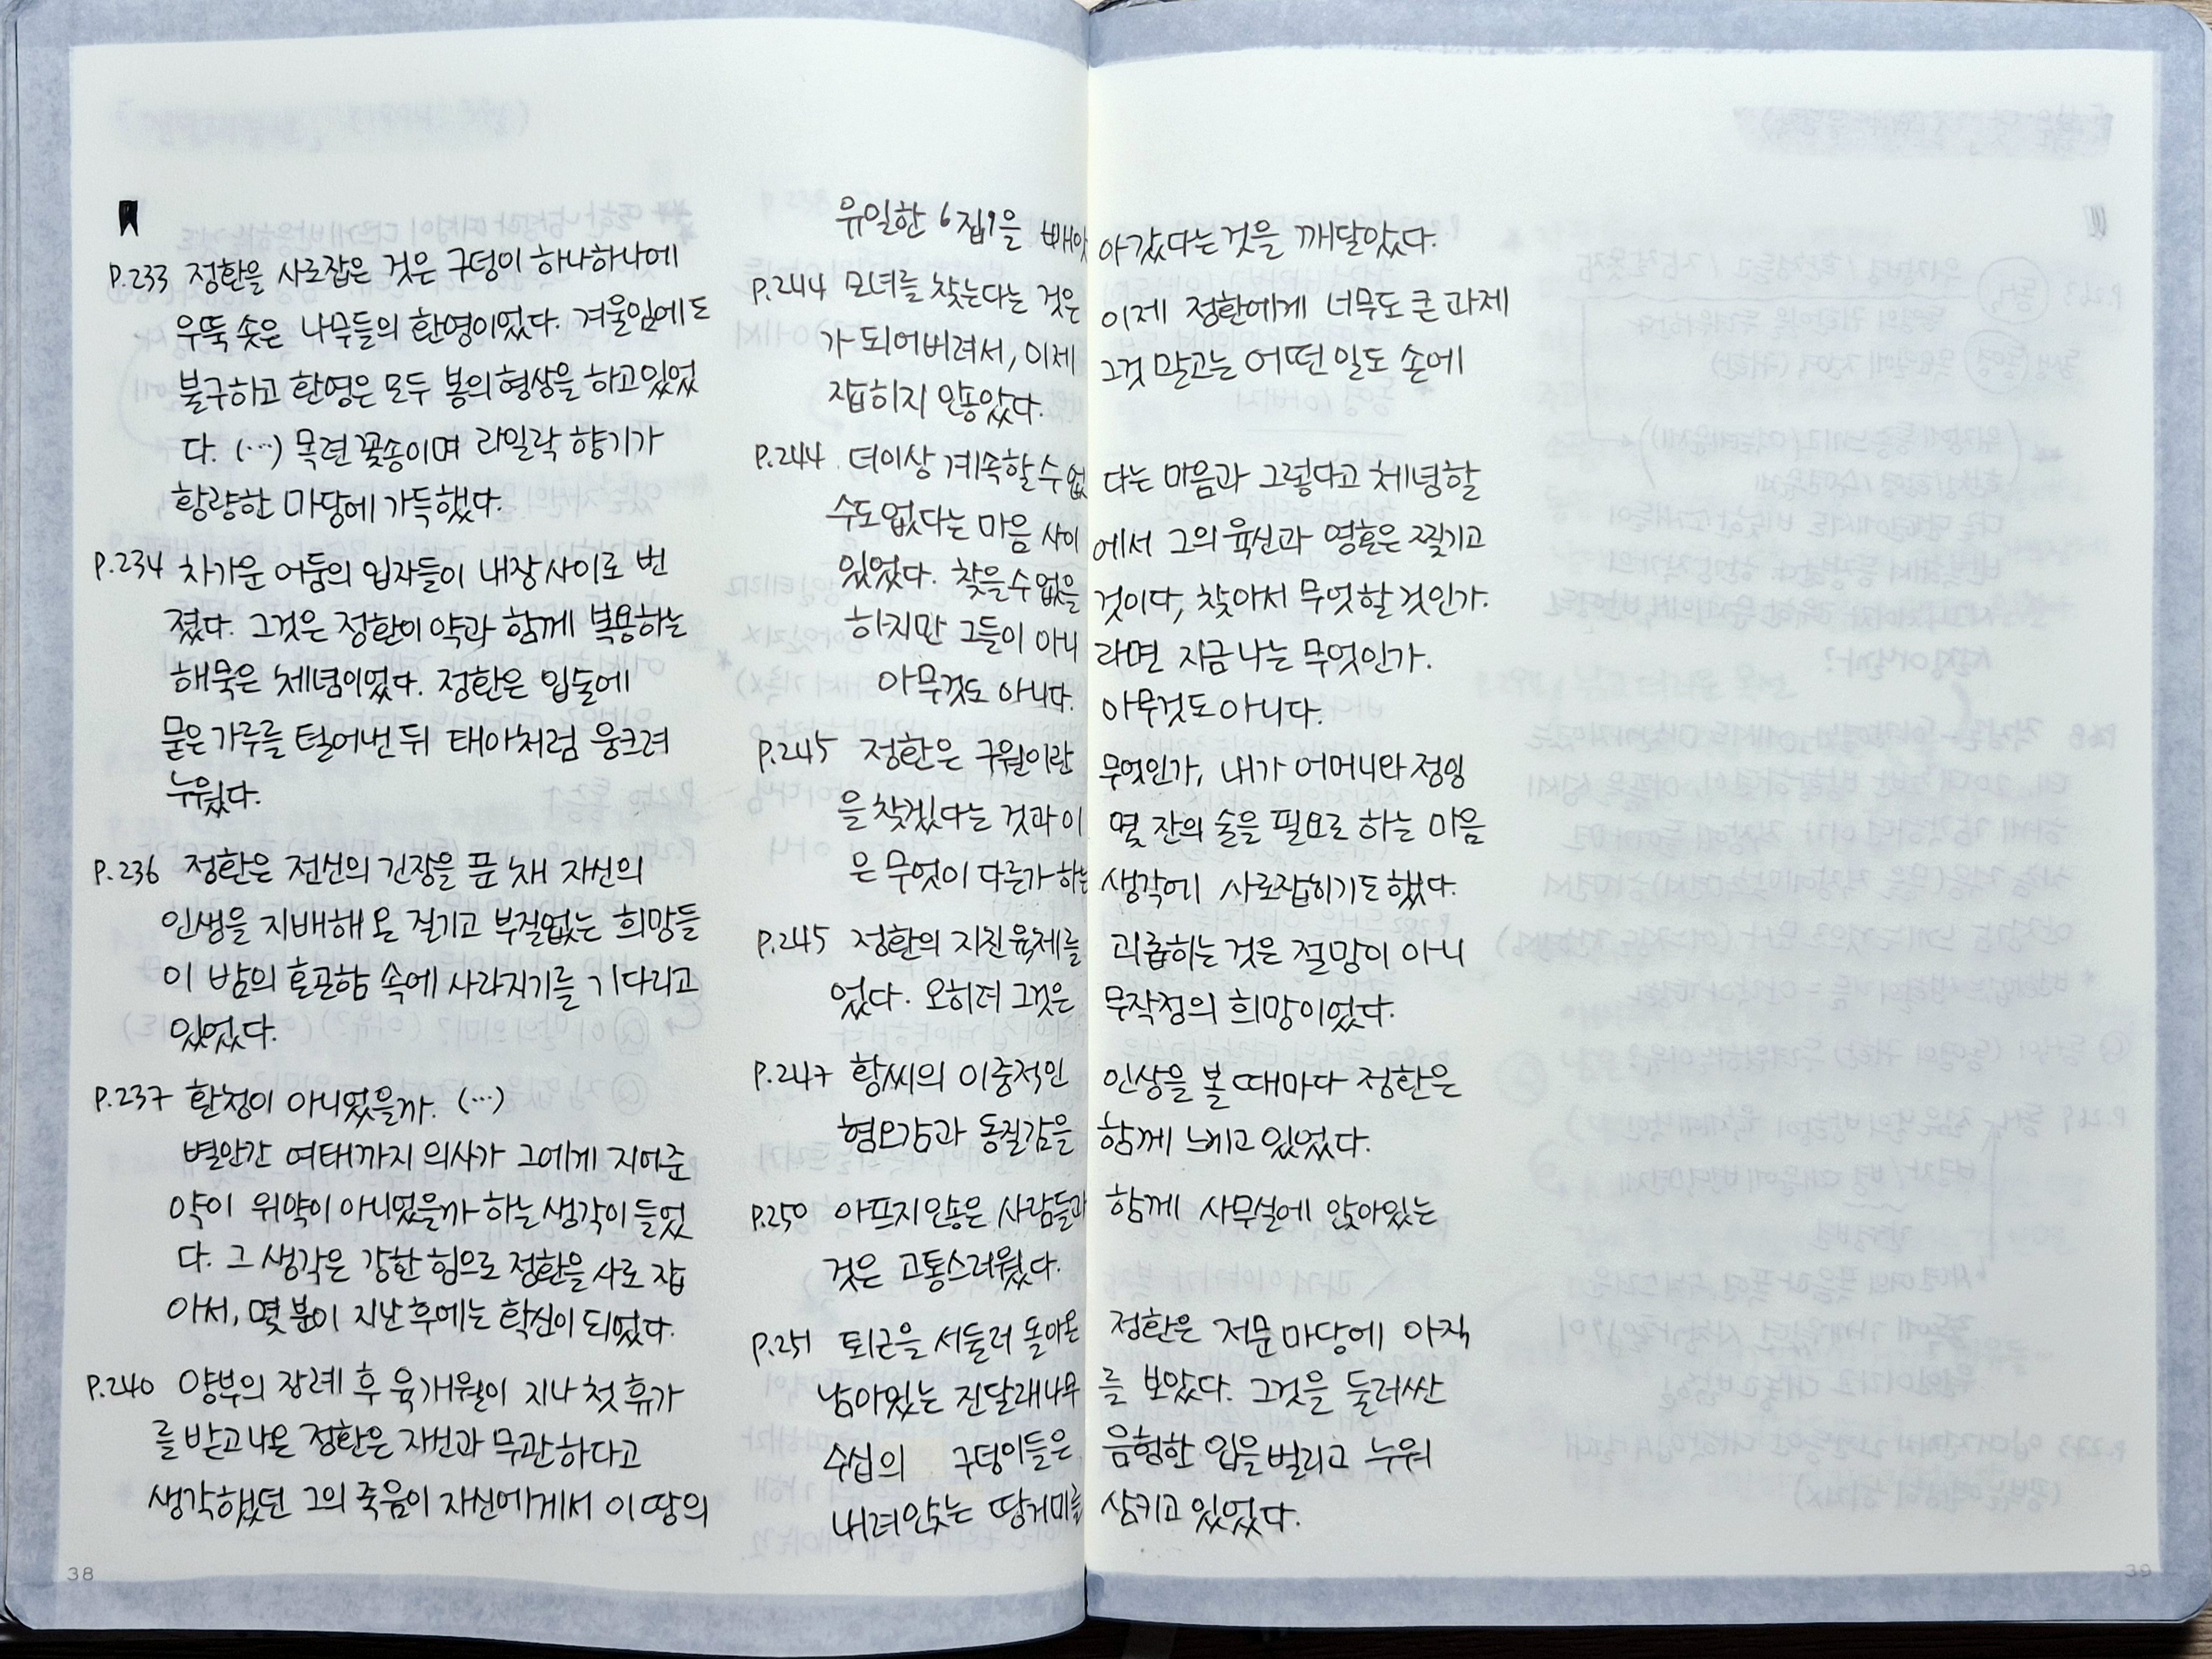 P.233 정환을 사로잡은 것은 구덩이 하나하나에
우뚝 솟은 나무들의 환영이었다. 겨울임에도
불구하고 환영은 모두 봄의 형상을 하고 있었
다. (…) 목련 꽃송이며 라일락 향기가
황량한 마당에 가득했다.
P.234 차가운 어둠의 입자들이 내장 사이로 번
졌다. 그것은 정환이 약과 함께 복용하는
해묵은 체념이었다. 정환은 입술에
묻은 가루를 털어낸 뒤 태아처럼 웅크려
누웠다.
P.236 정환은 전신의 긴장을 푼 채 자신의
인생을 지배해 온 질기고 부질없는 희망들
이 밤의 혼곤함 속에 사라지기를 기다리고
있었다.
P.237 환청이 아니었을까. (…)
별안간 여태까지 의사가 그에게 지어준
약이 위약이 아니었을까 하는 생각이 들었
다. 그 생각은 강한 힘으로 정환을 사로 잡
아서, 몇 분이 지난 후에는 확신이 되었다.
P.240 양부의 장례 후 육개월이 지나 첫 휴가
를 받고 나온 정환은 자신과 무관하다고
생각했던 그의 죽음이 자신에게서 이 땅의
유일한 '집'을 빼앗아 갔다는 것을 깨달았다.
P.244 모녀를 찾는다는 것은 이제 정환에게 너무도 큰 과제
가 되어버려서, 이제 그것 말고는 어떤 일도 손에
잡히지 않았다.
P.244 더이상 계속할 수 없다는 마음과 그렇다고 체념할
수도 없다는 마음 사이에서 그의 육신과 영혼은 찢기고
있었다. 찾을 수 없을 것이다, 찾아서 무엇할 것인가.
하지만 그들이 아니라면 지금 나는 무엇인가.
아무것도 아니다. 아무것도 아니다.
P.245 정환은 구원이란 무엇인가, 내가 어머니와 정임
을 찾겠다는 것과 이 몇 잔의 술을 필요로 하는 마음
은 무엇이 다른가 하는 생각에 사로잡히기도 했다.
P.245 정환의 지친 육체를 괴롭히는 것은 절망이 아니
었다. 오히려 그것은 무작정의 희망이었다.
P.247 황씨의 이중적인 인상을 볼 때마다 정환은
혐오감과 동질감을 함께 느끼고 있었다.
P.250 아프지 않은 사람들과 함께 사무실에 앉아있는
것은 고통스러웠다.
P.251 퇴근을 서둘러 돌아온 정환은 저문 마당에 아직
남아있는 진달래나무를 보았다. 그것을 둘러싼
수십의 구덩이들은 음험한 입을 벌리고 누워
내려앉는 땅거미를 삼키고 있었다.
38
39